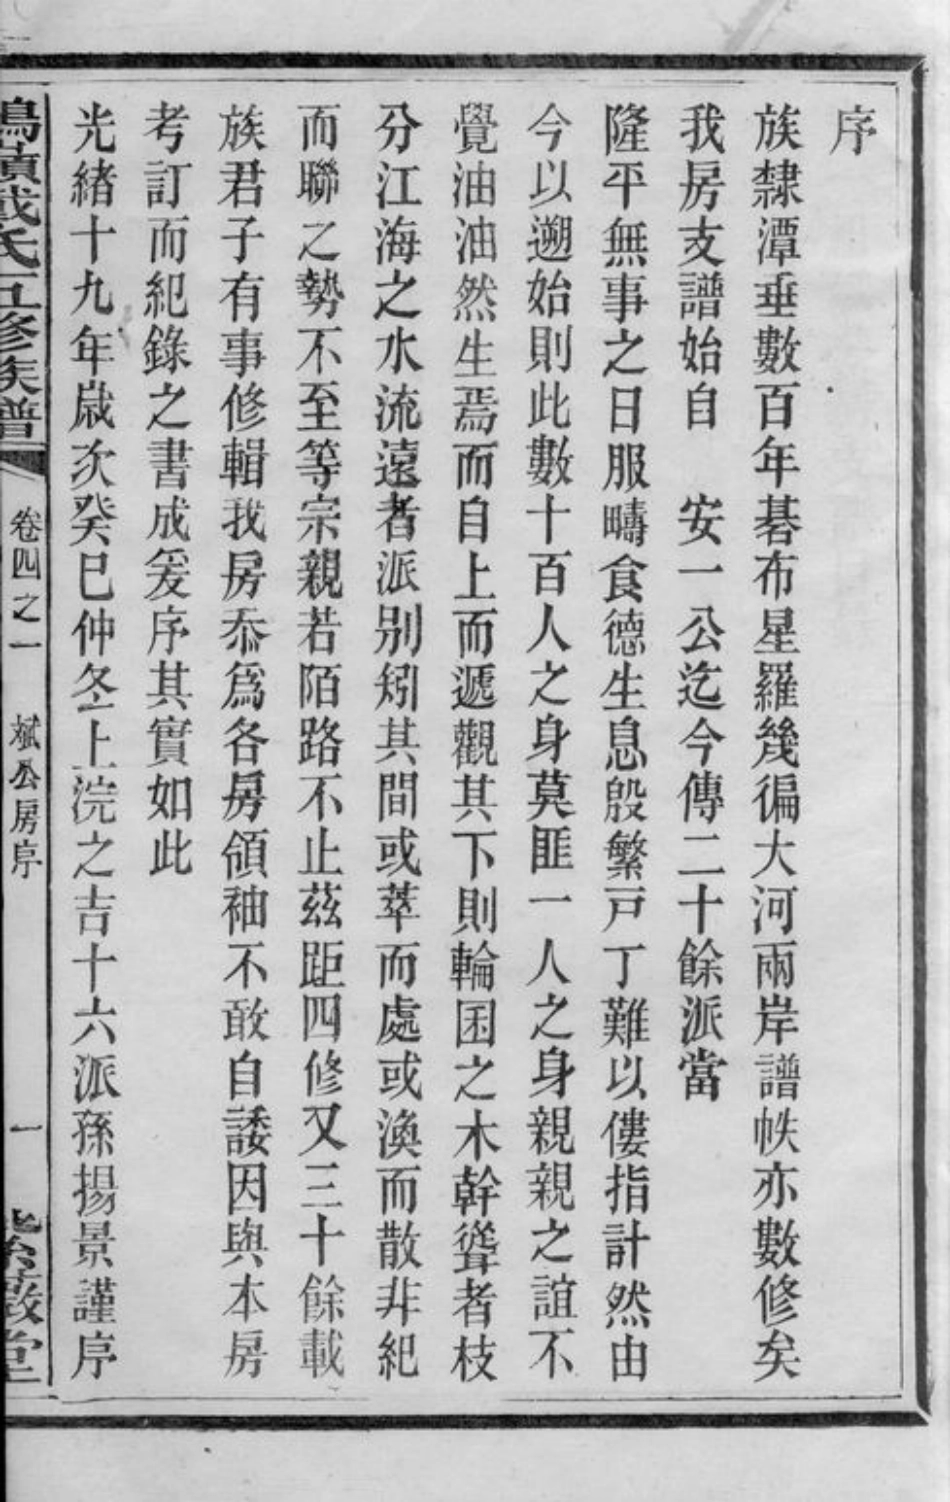 序
族隸潭垂數百年碁布星羅幾徧大河兩岸譜帙亦數修矣
我房支譜始自　安一公迄今傳二十餘派當
隆平無事之日服疇食德生息殷繁戸丁難以僂指計然由
今以遡始則此數十百人之身莫匪一人之身親親之誼不
覺油油然生焉而自上而遞觀其下則輪囷之木幹聳者枝
分江海之水流遠者派别矧其間或萃而處或渙而散非紀
而聯之勢不至等宗親若陌路不止茲距四修又三十餘載
族君子有事修輯我房忝爲各房領袖不敢自諉因與本房
考訂而紀錄之書成爰序其實如此
光緒十九年歲次癸巳仲冬上浣之吉十六派孫揚景謹序
戴氏五修族譜
卷四之一　斌公房序　一